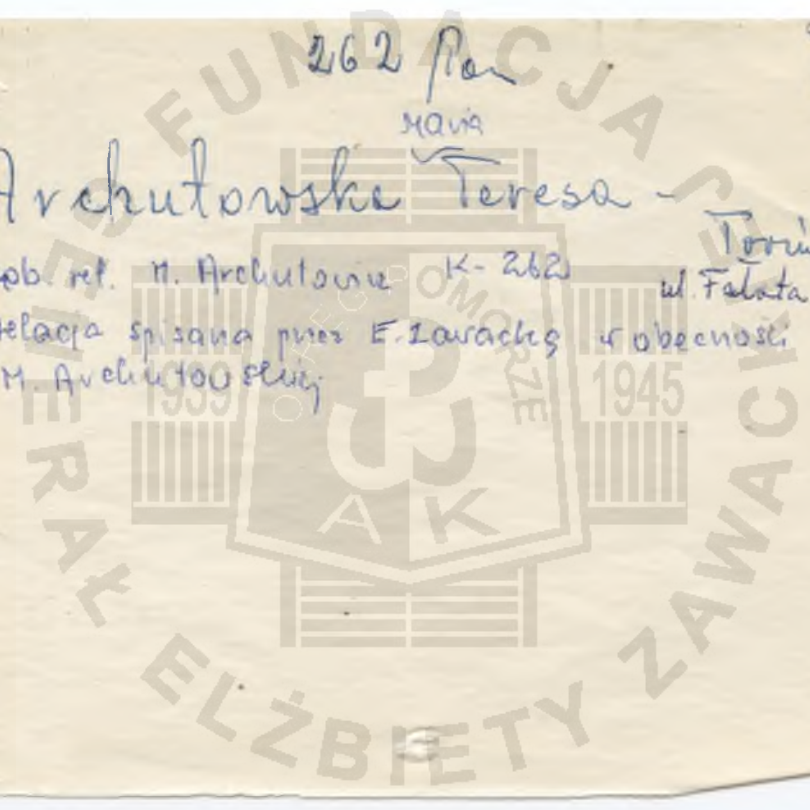 262 Pom
Maria
Archutowska Teresa -
Toruń
ob. rel. M. Archutowie K-262
ul. Fałata
relacja spisana przez E. Zawacką w obecności
M. Archutowskiej
FUNDACJA GENERAŁ ELŻBIETY ZAWACK
POMORZE
1939
1945
AK